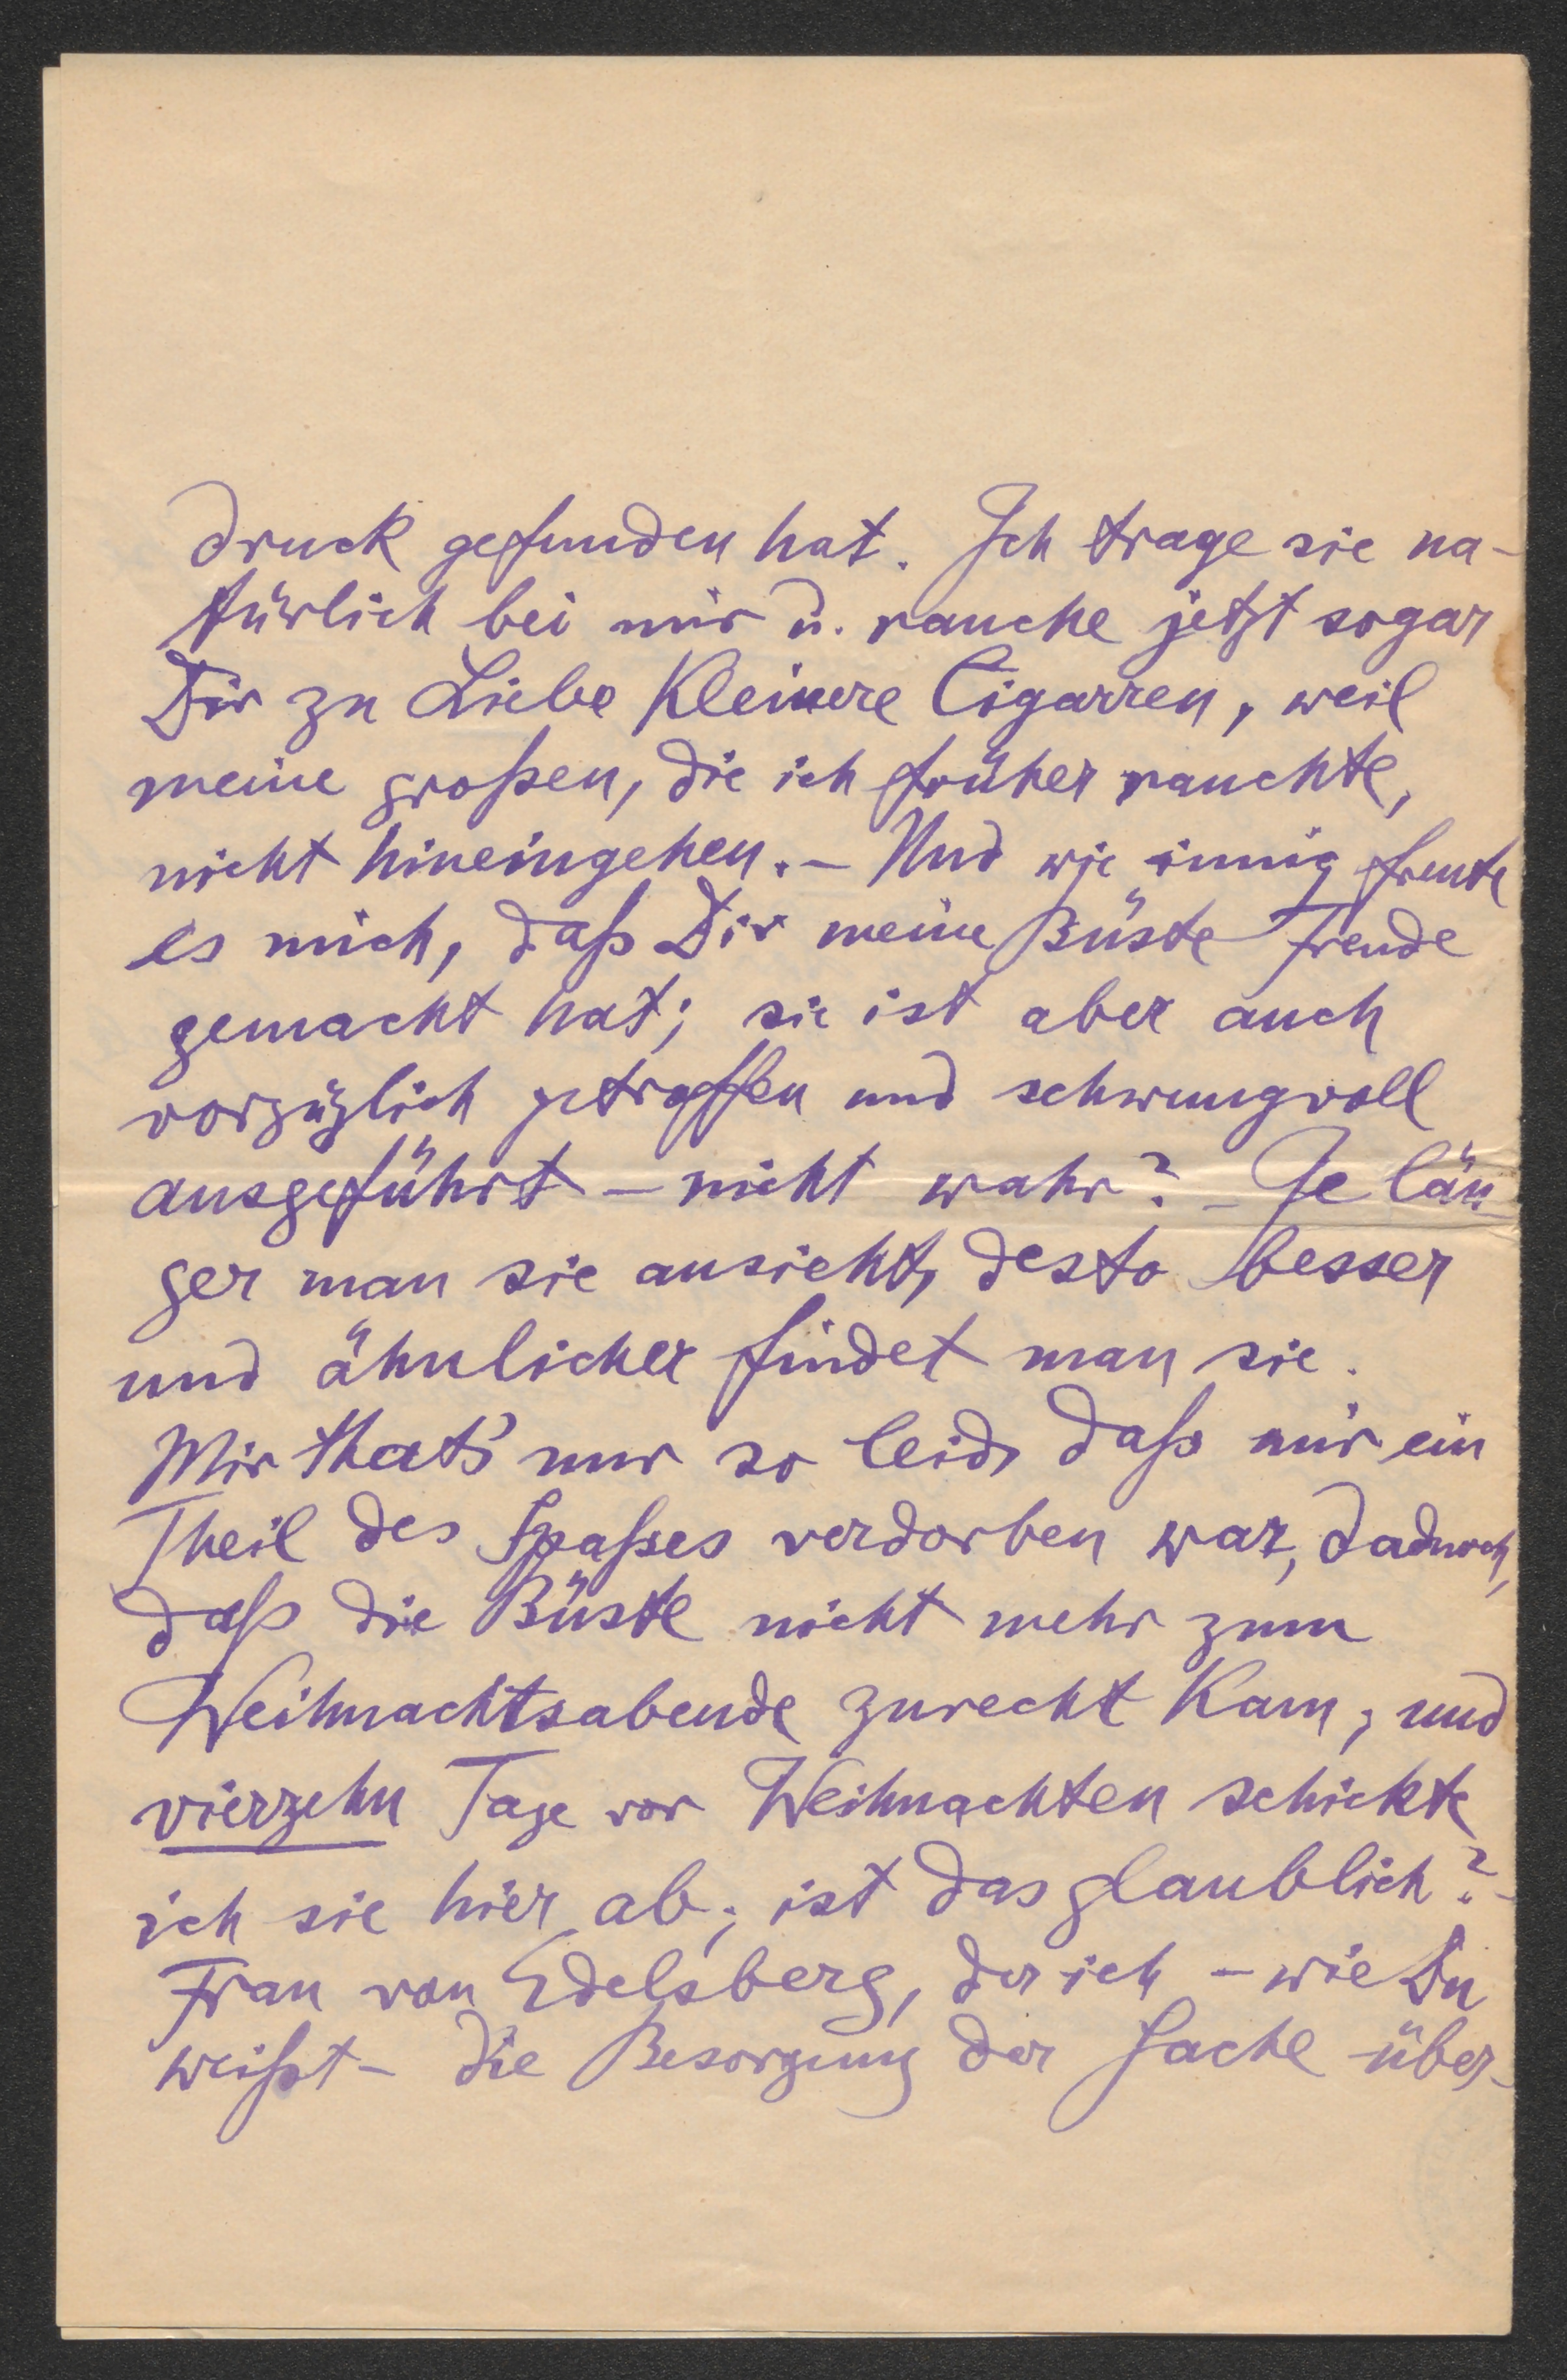 druck gefunden hat. Ich trage sie na-
türlich bei mir u. rauche jetzt sogar
Dir zu Liebe kleinere Cigarren, weil
meine großen, die ich früher rauchte,
nicht hineingehen. – Und wie innig freute
es mich, daß Dir meine Büste Freude
gemacht hat; sie ist aber auch
vorzüglich getroffen und schwungvoll
ausgeführt – nicht wahr? – Je län-
ger man sie ansieht, desto besser
und ähnlicher findet man sie.
Mir that's nur so leid, daß mir ein
Theil des Spaßes verdorben war, dadurch,
daß die Büste nicht mehr zum
Weihnachtsabende zurecht kam; und
vierzehn Tage vor Weihnachten schickte
ich sie hier ab; ist das glaublich? –
Frau von Edelsberg, der ich – wie Du
weißt – die Besorgung der Sache über-